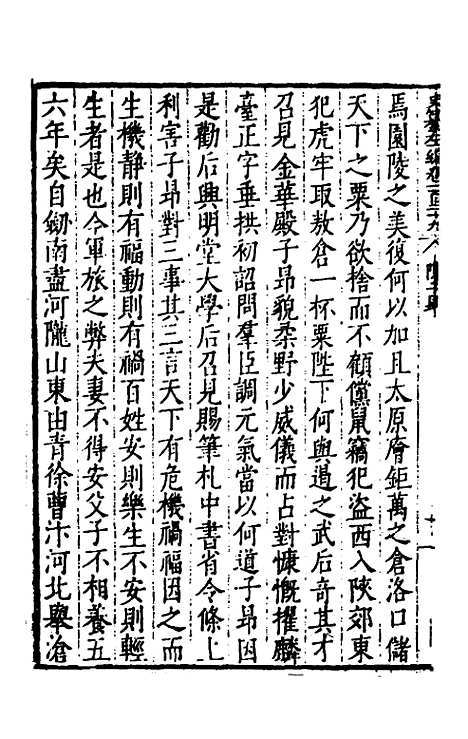 焉園陵之美復何以加且太原廥鉅萬之倉洛口儲
天下之粟乃欲捨而不顧儻鼠竊犯盜西入陝郊東
犯虎牢取敖倉一杯粟陛下何與遏之武后奇其才
召見金華殿子昂貌柔野少威儀而占對慷慨擢麟
臺正字垂拱初詔問羣臣調元氣當以何道子昂因
是勸后興明堂大學后召見賜筆札中書省令條上
利害子昂對三事其三言天下有危機禍福因之而
生機靜則有福動則有禍百姓安則樂生不安則輕
生者是也今軍旅之弊夫妻不得安父子不相養五
六年矣自劒南盡河隴山東由青徐曹汴河北舉滄